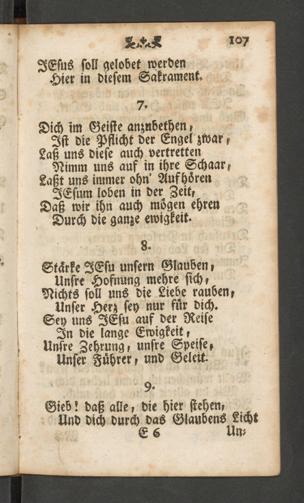 107
JEsus soll gelobet werden
Hier in diesem Sakrament.
7.
Dich im Geiste anzubethen,
Ist die Pflicht der Engel zwar,
Laß uns diese auch vertretten
Nimm uns auf in ihre Schaar,
Laßt uns immer ohn' Aufhören
JEsum loben in der Zeit,
Daß wir ihn auch mögen ehren
Durch die ganze ewigkeit.
8.
Stärke JEsu unsern Glauben,
Unsre Hofnung mehre sich,
Nichts soll uns die Liebe rauben,
Unser Herz sey nur für dich.
Sey uns JEsu auf der Reise
In die lange Ewigkeit,
Unsre Zehrung, unsre Speise,
Unser Führer, und Geleit.
9.
Gieb! daß alle, die hier stehen,
Und dich durch das Glaubens Licht
E 6 Un-